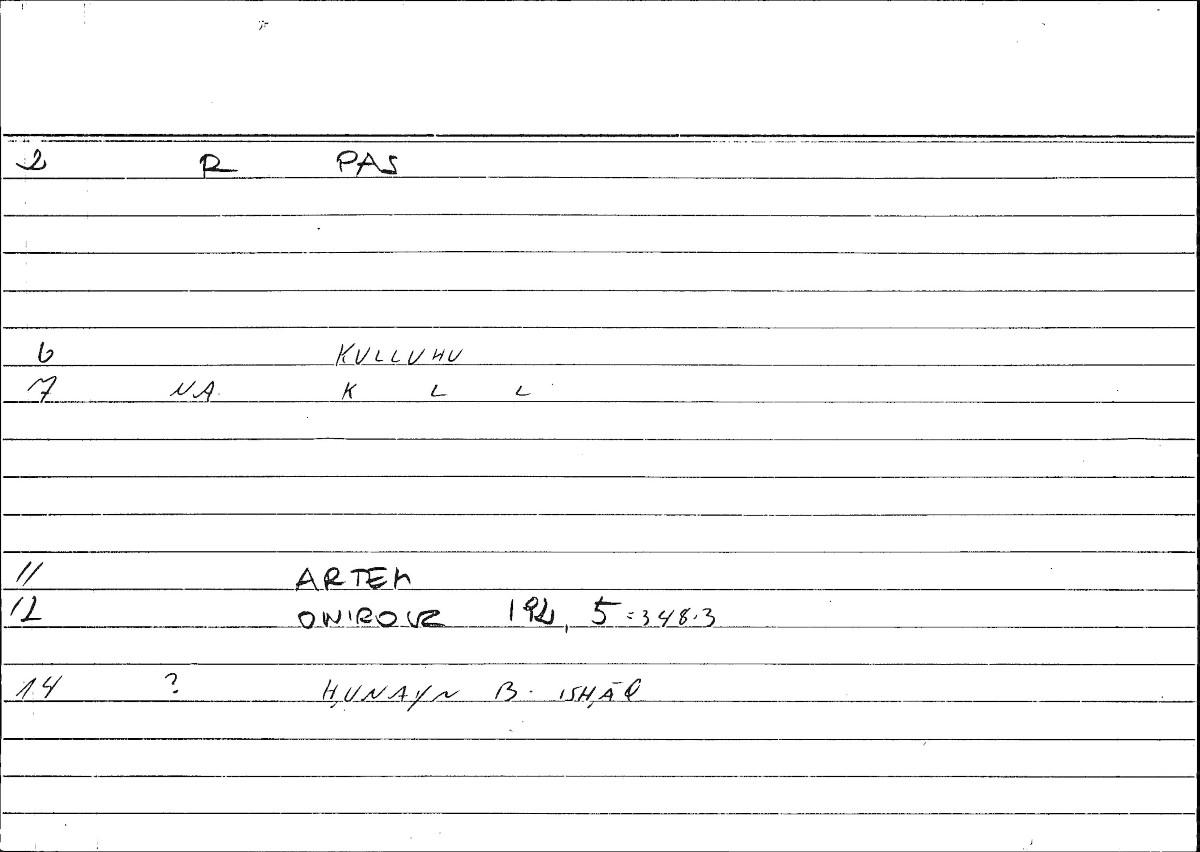 2 R PAS
6 KULLUHU
7 NA K L L
11 ARTEM
12 ONIROCR 192, 5 = 348.3
14 ? ḤUNAYN B. ISḤĀQ